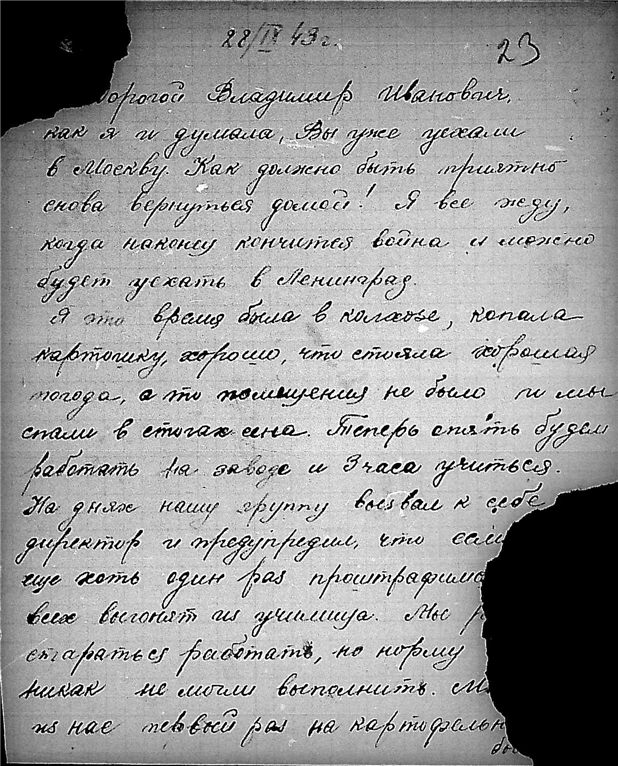 28/IX 43 г.
23
орогой Владимир Иванович,
как я и думала, Вы уже уехали
в Москву. Как должно быть приятно
снова вернуться домой! Я все жду,
когда наконец кончится война и можно
будет уехать в Ленинград.
Я это время была в колхозе, копала
картошку, хорошо, что стояла хорошая
погода, а то помещения не было и мы
спали в стогах сена. Теперь опять будем
работать на заводе и 3 часа учиться.
На днях нашу группу вызвал к себе
директор и предупредил, что если
еще хоть один раз проштрафимс
всех выгонят из училища. Мы
стараться работать, но норму
никак не могли выполнить. М
из нас первый раз на картофельн